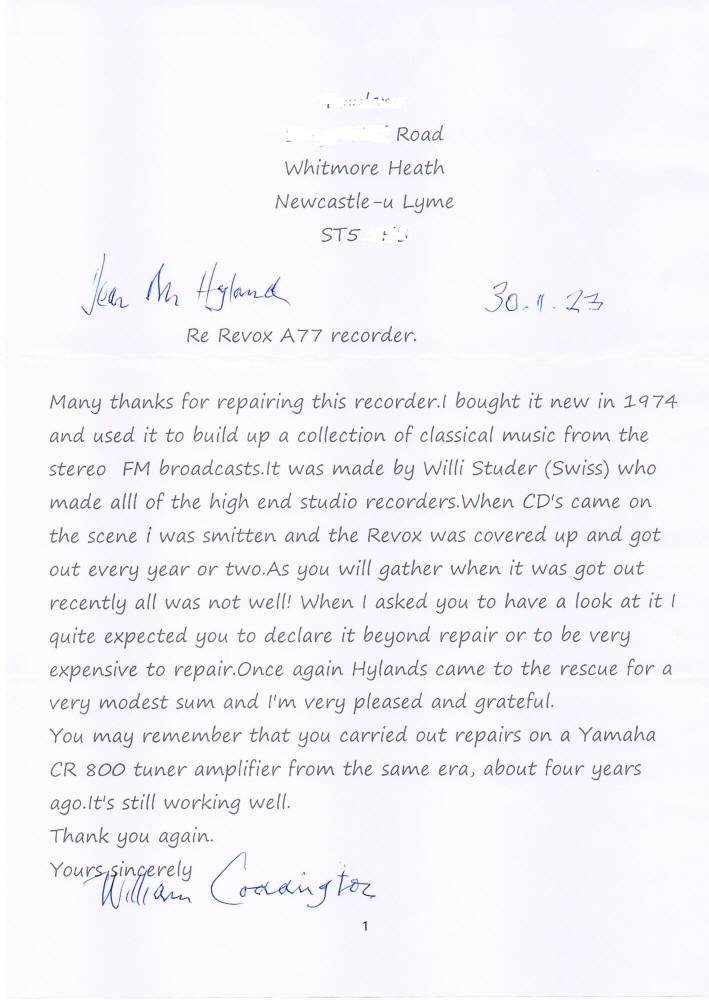 Road
Whitmore Heath
Newcastle-u Lyme
ST5
Dear Mr Hyland 30.11.23
Re Revox A77 recorder.
Many thanks for repairing this recorder.I bought it new in 1974
and used it to build up a collection of classical music from the
stereo FM broadcasts.It was made by Willi Studer (Swiss) who
made alll of the high end studio recorders.When CD's came on
the scene i was smitten and the Revox was covered up and got
out every year or two.As you will gather when it was got out
recently all was not well! When I asked you to have a look at it I
quite expected you to declare it beyond repair or to be very
expensive to repair.Once again Hylands came to the rescue for a
very modest sum and I'm very pleased and grateful.
You may remember that you carried out repairs on a Yamaha
CR 800 tuner amplifier from the same era, about four years
ago.It's still working well.
Thank you again.
Yours sincerely
William Coddington
1